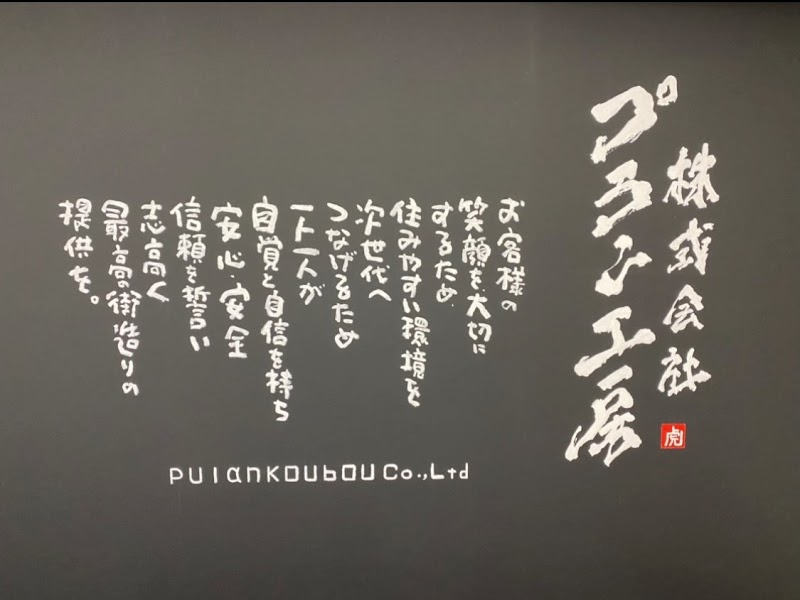 株式会社
プラン工房
お客様の
笑顔を大切に
するため
住みやすい環境を
次世代へ
つなげるため
一人一人が
自覚と自信を持ち
安心・安全
信頼を誓い
志高く
最高の街造りの
提供を。
PulankoubouCo.,Ltd
虎